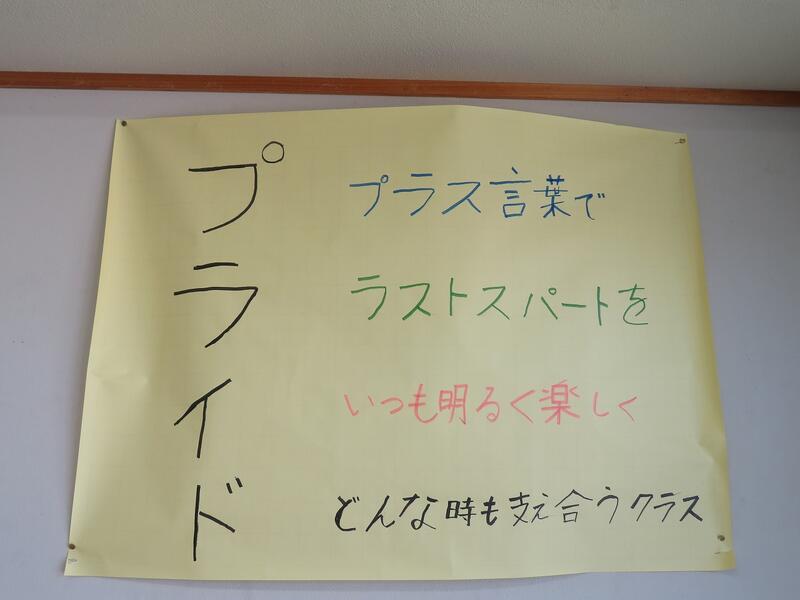 プライド
プラス言葉で
ラストスパートを
いつも明るく楽しく
どんな時も支え合うクラス